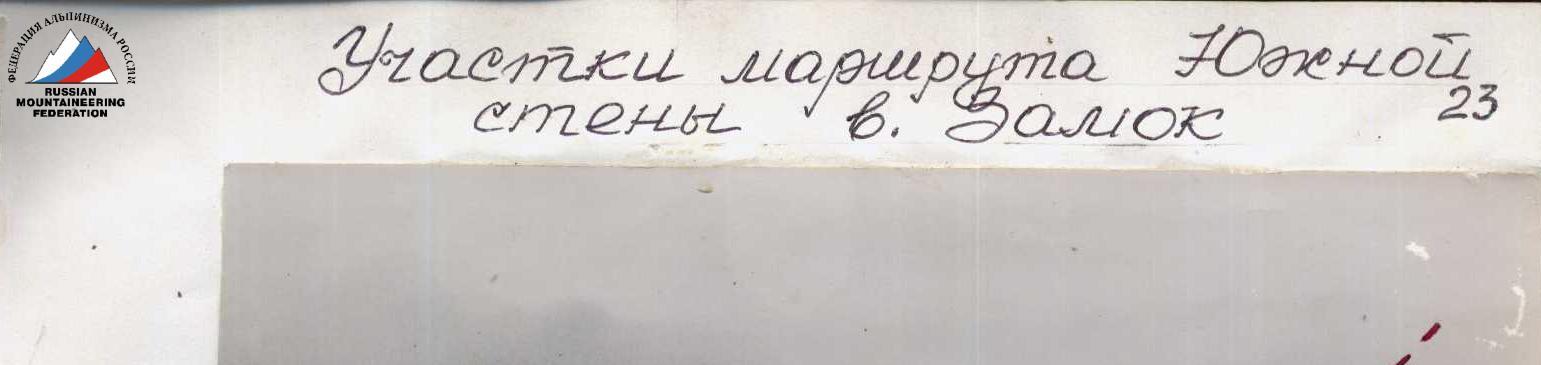 ФЕДЕРАЦИЯ АЛЬПИНИЗМА РОССИИ
RUSSIAN
MOUNTAINEERING
FEDERATION
Участки маршрута Южной
стены в. Замок
23